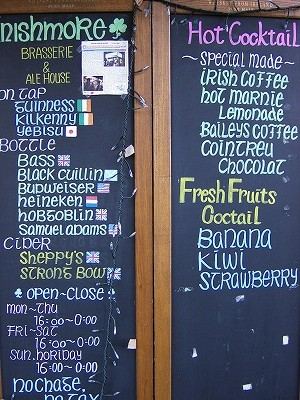 nishmore
BRASSERIE
&
ALE HOUSE
ON TAP
GUINNESS
KILKENNY
YEBISU
BOTTLE
BASS
BLACK CUILLIN
BUDWEISER
HEINEKEN
HOBGOBLIN
SAMUEL ADAMS
CIDER
SHEPPY'S
STRONG BOW
OPEN~CLOSE
MON~THU
16:00~0:00
FRI~SAT
16:00~0:00
SUN.HORIDAY
16:00~0:00
NO CHARGE.
NO TAX
Hot Cocktail
~SPECIAL MADE~
IRISH COFFEE
HOT MARNIE
LEMONADE
BAILEYS COFFEE
COINTREU
CHOCOLAT
FRESH FRUITS
COCTAIL
BANANA
KIWI
STRAWBERRY